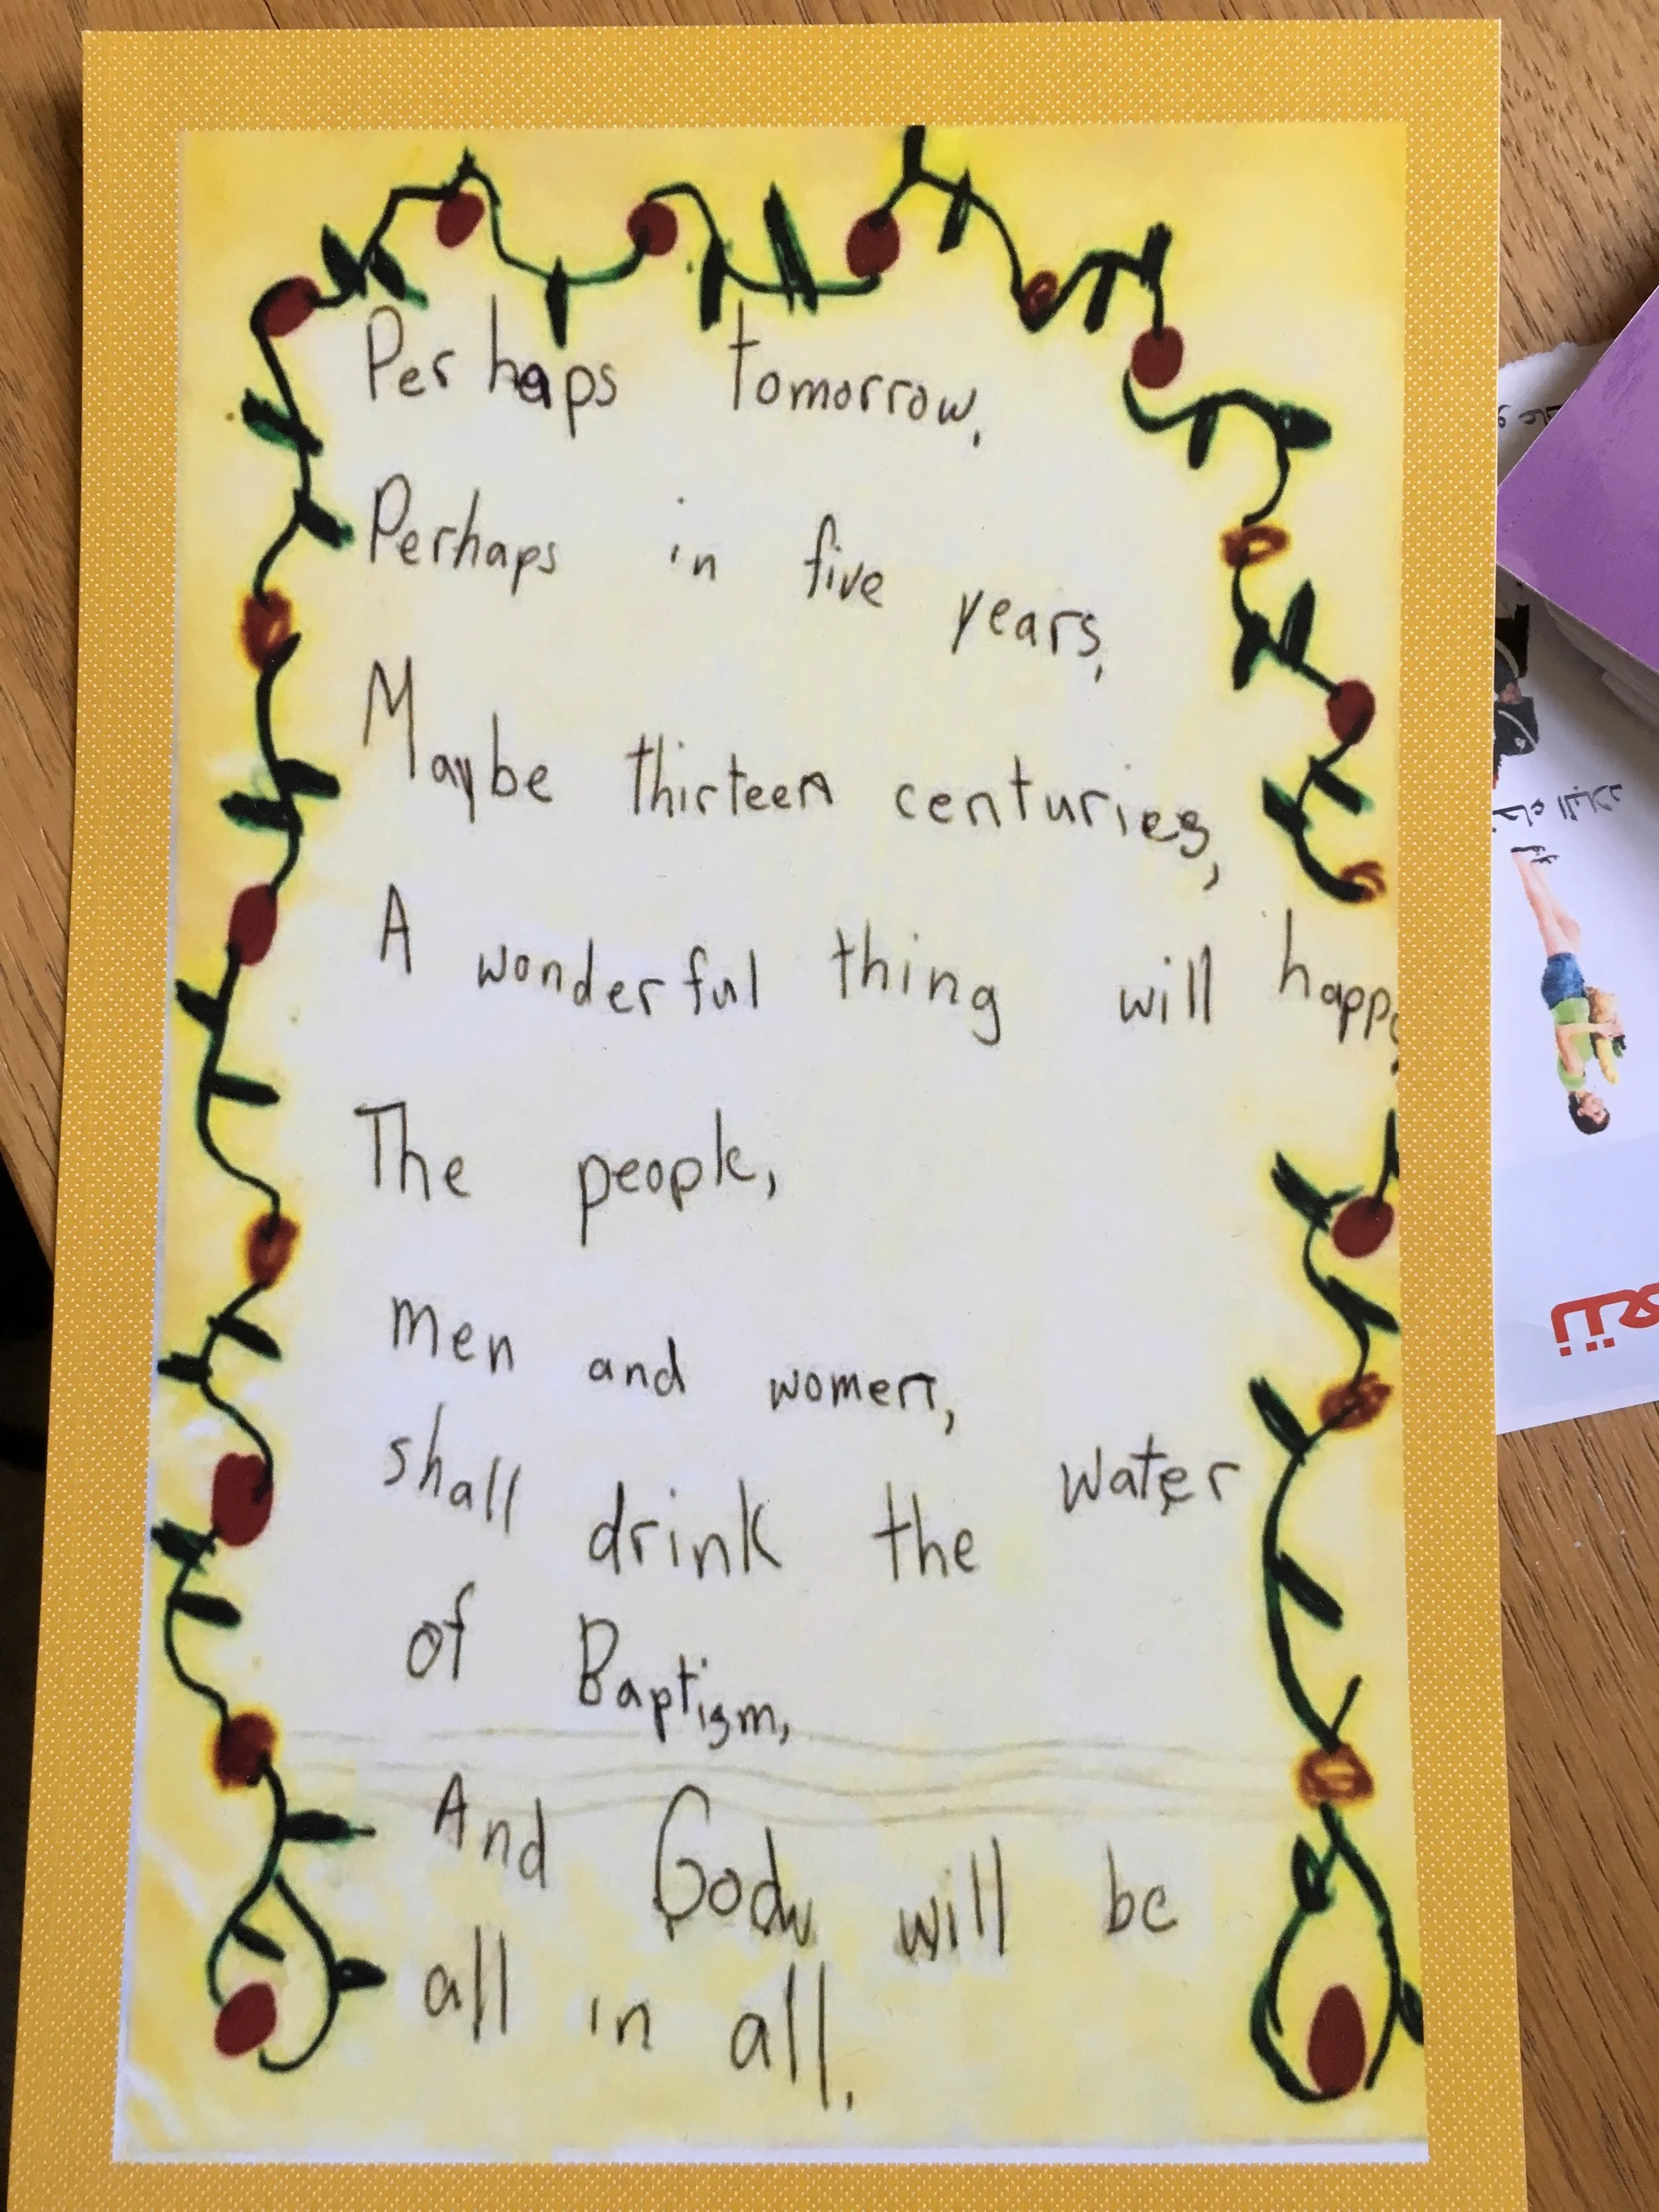 Perhaps tomorrow,
Perhaps in five years,
Maybe thirteen centuries,
A wonderful thing will happe
The people,
men and women,
shall drink the water
of Baptism,
And God will be
all in all.